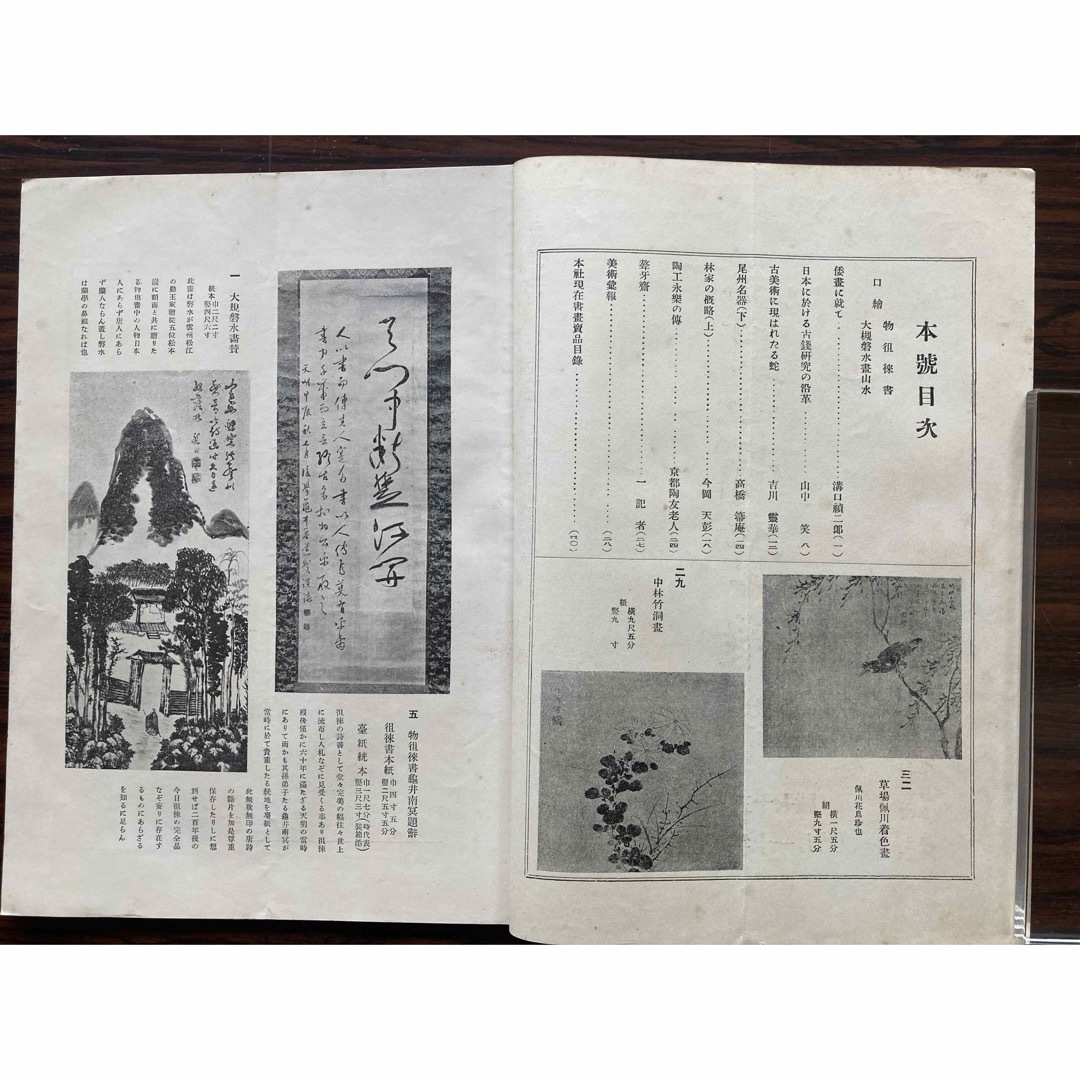 本號目次
口繪 物徂徠書
大槻磐水畫山水
倭畫に就て 溝口禎二郎(一)
日本に於ける古錢研究の沿革 山中 笑(八)
古美術に現はれたる蛇 吉川 靈華(一二)
尾州名器(下) 高橋 箒庵(一四)
林家の概略(上) 今岡 天彭(一八)
陶工永樂の傳 京都陶友老人(二四)
聱牙齋 一記者(二七)
美術彙報 (三八)
本社現在書畫賣品目錄 (四〇)
三二
草場佩川着色畫
佩川花鳥珍也
絹 橫一尺五分
竪九寸五分
二九
中林竹洞畫
紙 橫九尺五分
竪九寸
五 物徂徠書龜井南冥題辭
徂徠書本紙 巾四寸五分
竪二尺五寸五分
臺紙絖本 巾一尺七分(時代表
竪三尺三寸(裝箱渋)
徂徠の詩書として堂々完美の幅往々世上
に流布し入札なぞに見受くる事あり徂徠
歿後僅かに六十年に滿たざる天明の當時
にありて而かも其孫弟子たる龜井南冥が
當時に於て貴重したる絖地を臺紙として
此無款無印の唐詩
の斷片を如是尊重
保存したりしに想
到せば二百年後の
今日徂徠の完全品
なぞ妄りに存在す
るものにあらざる
を知るに足らん
一 大槻磐水畫贊
紙本 巾二尺二寸
竪四尺六寸
此畫は磐水が雲州松江
の勤王家贈從五位松本
嵓に賴雨と共に贈りた
る物也畫中の人物日本
人にあらず唐人にあら
ず蘭人ならん蓋し磐水
は蘭學の鼻祖なれば也